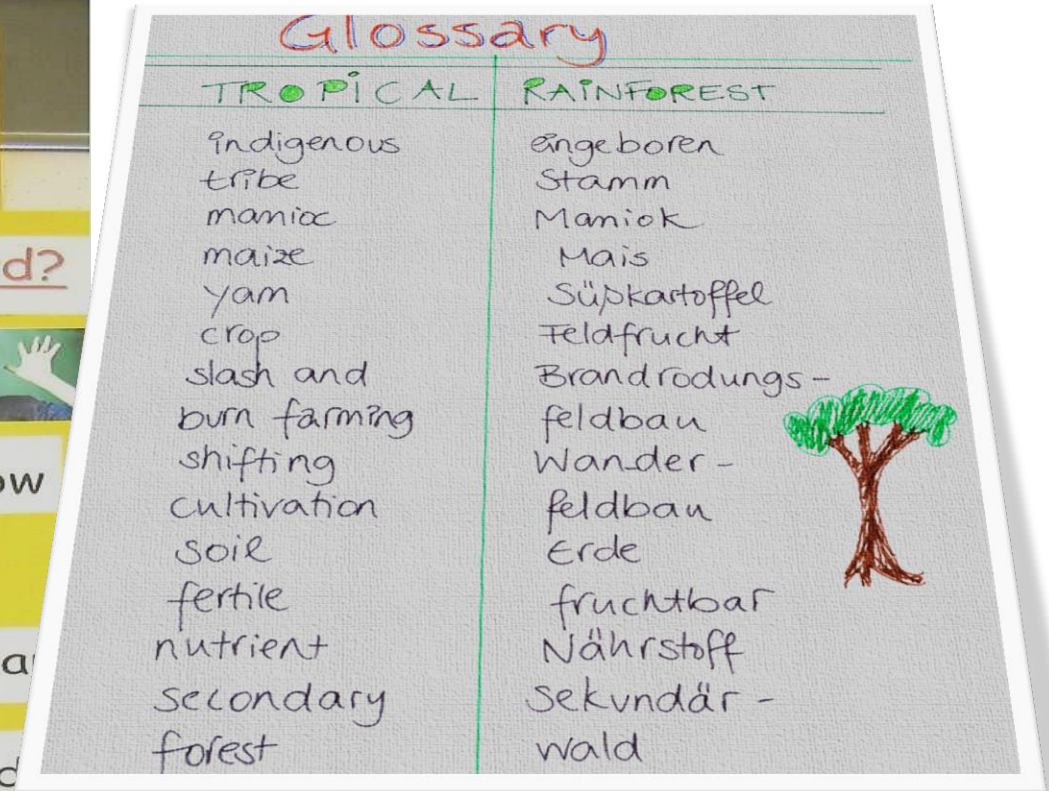 Glossary
TROPICAL RAINFOREST
indigenous eingeboren
tribe Stamm
manioc Maniok
maize Mais
yam Süßkartoffel
crop Feldfrucht
slash and Brandrodungs-
burn farming feldbau
shifting Wander-
cultivation feldbau
soil Erde
fertile fruchtbar
nutrient Nährstoff
secondary Sekundär-
forest wald
d?
ow